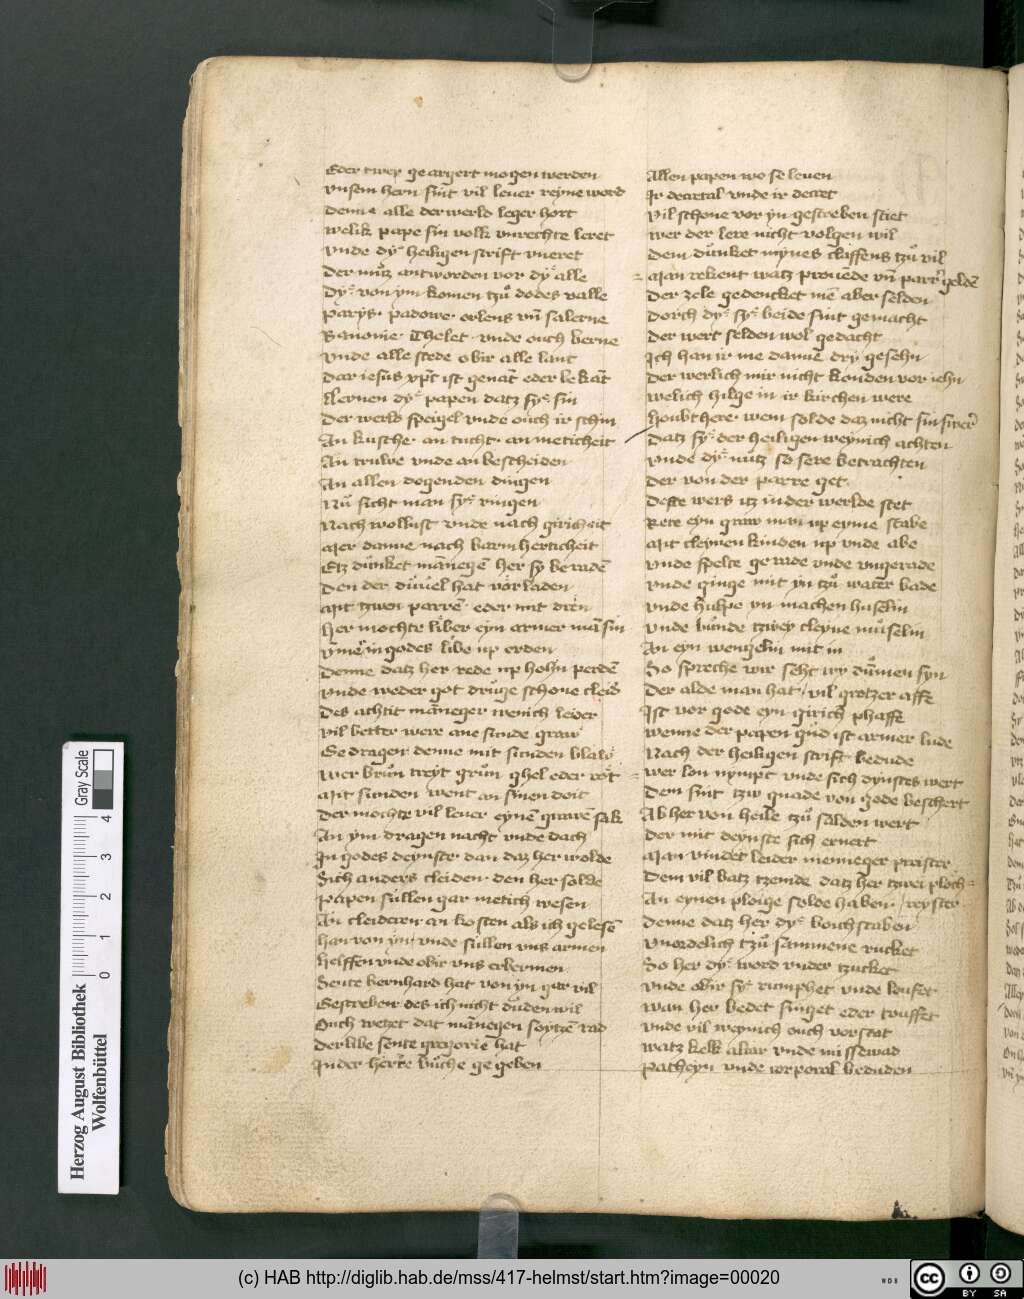 Eder twey geargert mogen werden
Vnsem hern sint vil leuer reyne word
Denne alle der werld leger hort
Welik pape sin volk vnrechte leret
Vnde dy heiligen scrift vneret
Der muz antworden vor dy alle
Dy von ym komen tzu dodes valle
Parys. padowe. orlens vn salerne
Banonie. Tholet. vnde ouch berne
Vnde alle stede obir alle lant
Dar iesus xpc ist genat eder bekat
Lernen dy papen datz sy sin
Der werld speigel vnde ouch ir schin
An kusche. an tucht. an meticheit
An truwe vnde an bescheiden
An allen dogenden dingen
Nu sicht man sy ringen
Nach wollust vnde nach giricheit
Mer danne nach barmherticheit
Etz dunket manegen her sy beraden
Den der duuel hat vorladen
Mit tzwen parren eder mit dren
Her mochte liber eyn armer man sin
Vmer in godes libe up erden
Denne datz her rede up hohn perden
Vnde weder got druge schone cleid
Des achtit maneger wenich leider
Vil better were ane sunde graw
Ge dragen denne mit sunden blaw
Wer brun treyt grun ghel eder rot
Mit sunden went an sinen doit
Der mochte vil leuer eynen grawen sak
An ym dragen nacht vnde dach
In godes deynste. dan daz her wolde
Sich anders cleiden. den her solde
Papen sullen gar metich wesen
An cleideren an kosten als ich gelesen
han von ym vnde sullen vns armen
Helffen vnde obir vns erbermen
Sente bernhard hat von ym gar vil
Gescreben des ich nicht duden wil
Ouch wetzet dat manegen soytzen rad
Der libe sente gregorie hat
In der herte buche ge geben
Allen papen wo se leuen
Ir decretal vnde ir decret
Vil schone vor yn gescreben stet
Wer der lere nicht volgen wil
Dem dunket mynes claffens tzu vil
Man rekent watz prouede vn parr gelden
Der zele gedencket me aber selden
Dorch dy sy beide sint gemacht
Der wert selden wol gedacht
Ich han ir nie danne dry gesehn
Der werlich mir nicht konden vor iehn
Welich hilge in ir kirchen were
Houbthere. wem solde daz nicht sin swer
Datz sy der heiligen weynich achten
Vnde dy nutz so sere betrachten
Der von der parre get.
Deste wers itz in der werlde stet
Rete eyn graw man up eyme stabe
Mit cleynen kinden up vnde abe
Vnde spelte gerade vnde vngerade
Vnde ginge mit yn tzu water bade
Vnde hulpe yn machen huselin
Vnde bunde tzwey cleyne muselin
An eyn wengelin mit in
So spreche wir seht wy dummen syn
Der alde man hat vil grotzer affe
Ist vor gode eyn girich phaffe
Wenne der papen gud ist armer lude
Nach der heiligen scrift bedude
Wer lon nympt vnde sich dynstes wert
Dem sint tzw quade von gode beschert
Ab her von heile tzu salden wert
Der mit deynste sich ernert
Man vindet leider menneger preister
Dem vil batz tzemde datz her tzwei ploch
An eynen ploige solde haben. reyster
Denne datz her dy boichstaben
Vnordelich tzu sammene rucket
So her dy word vnder tzucket
Vnde obir sy rumphet vnde louset
Wan her bedet singet eder truffet
Vnde vil weynich ouch vorstat
Watz kelk altar vnde missewad
Patheyn vnde corporal beduden
Herzog August Bibliothek
Wolfenbüttel
Gray Scale
0 1 2 3 4
(c) HAB http://diglib.hab.de/mss/417-helmst/start.htm?image=00020
WDB
cc BY SA